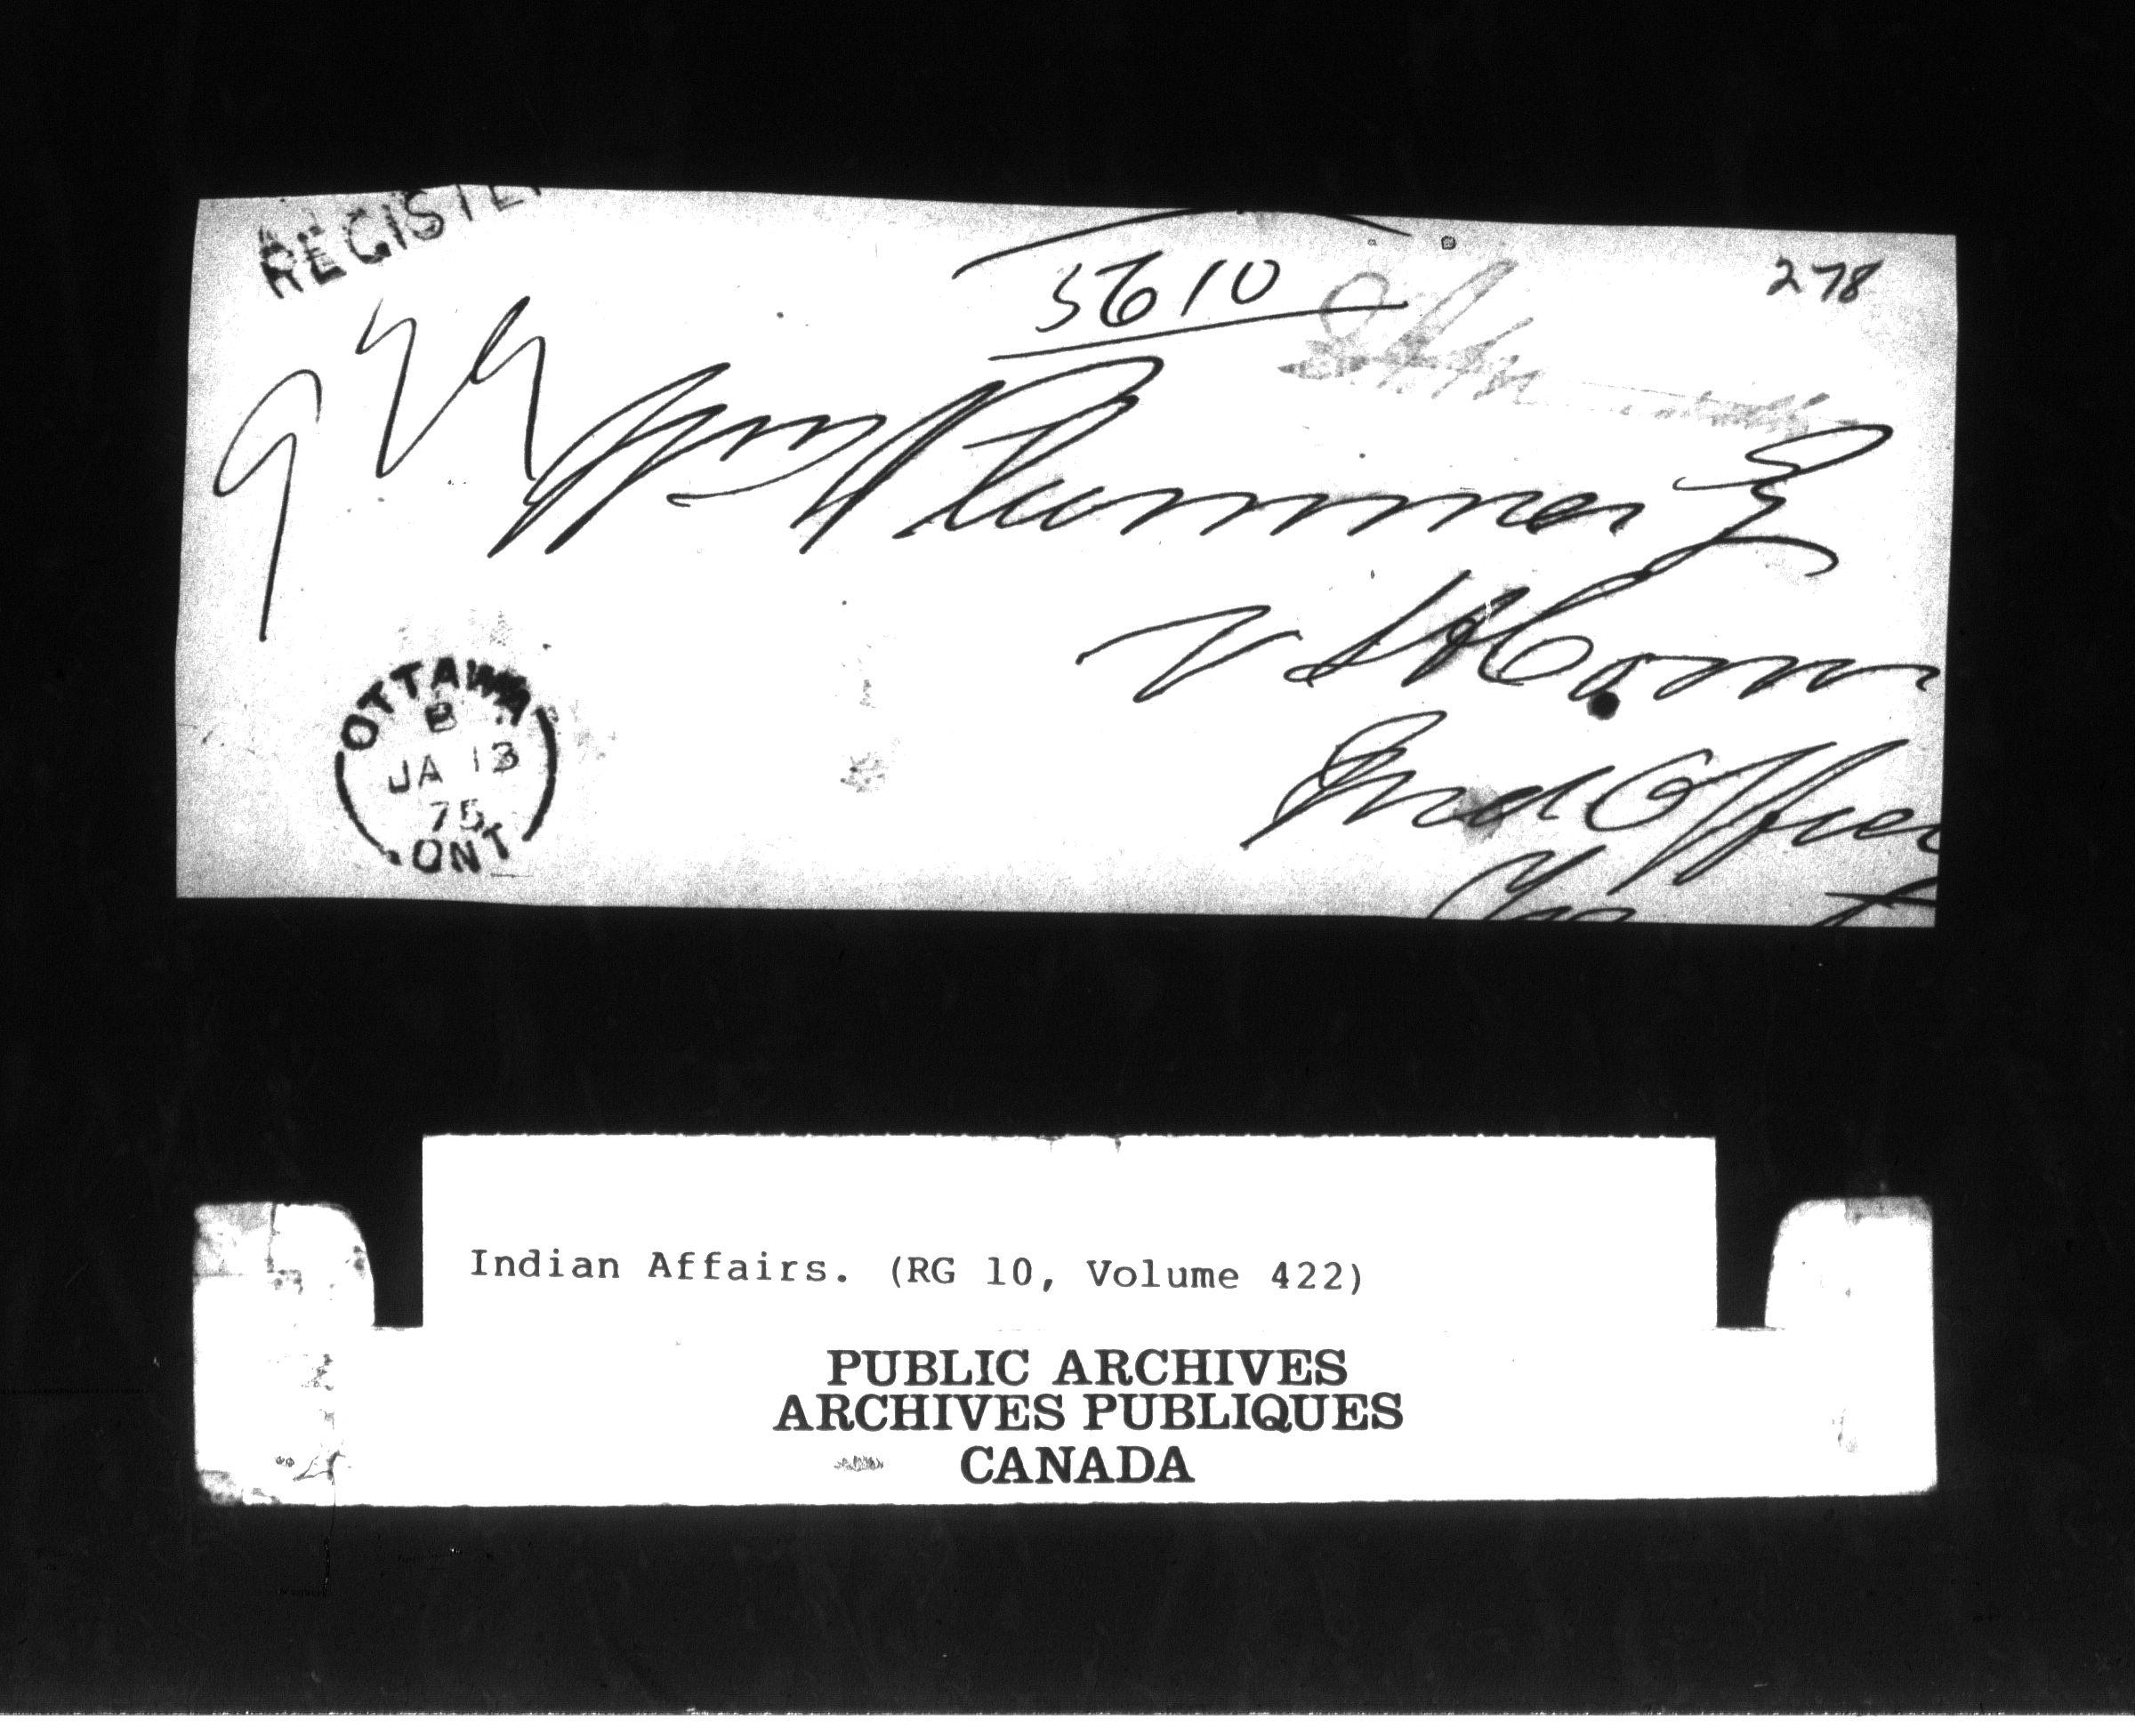 REGISTE
5610
278
979
Wm Plummer Esq
V S & Com
Ind Office
OTTAWA
B
JA 13
75
ONT
Indian Affairs. (RG 10, Volume 422)
PUBLIC ARCHIVES
ARCHIVES PUBLIQUES
CANADA